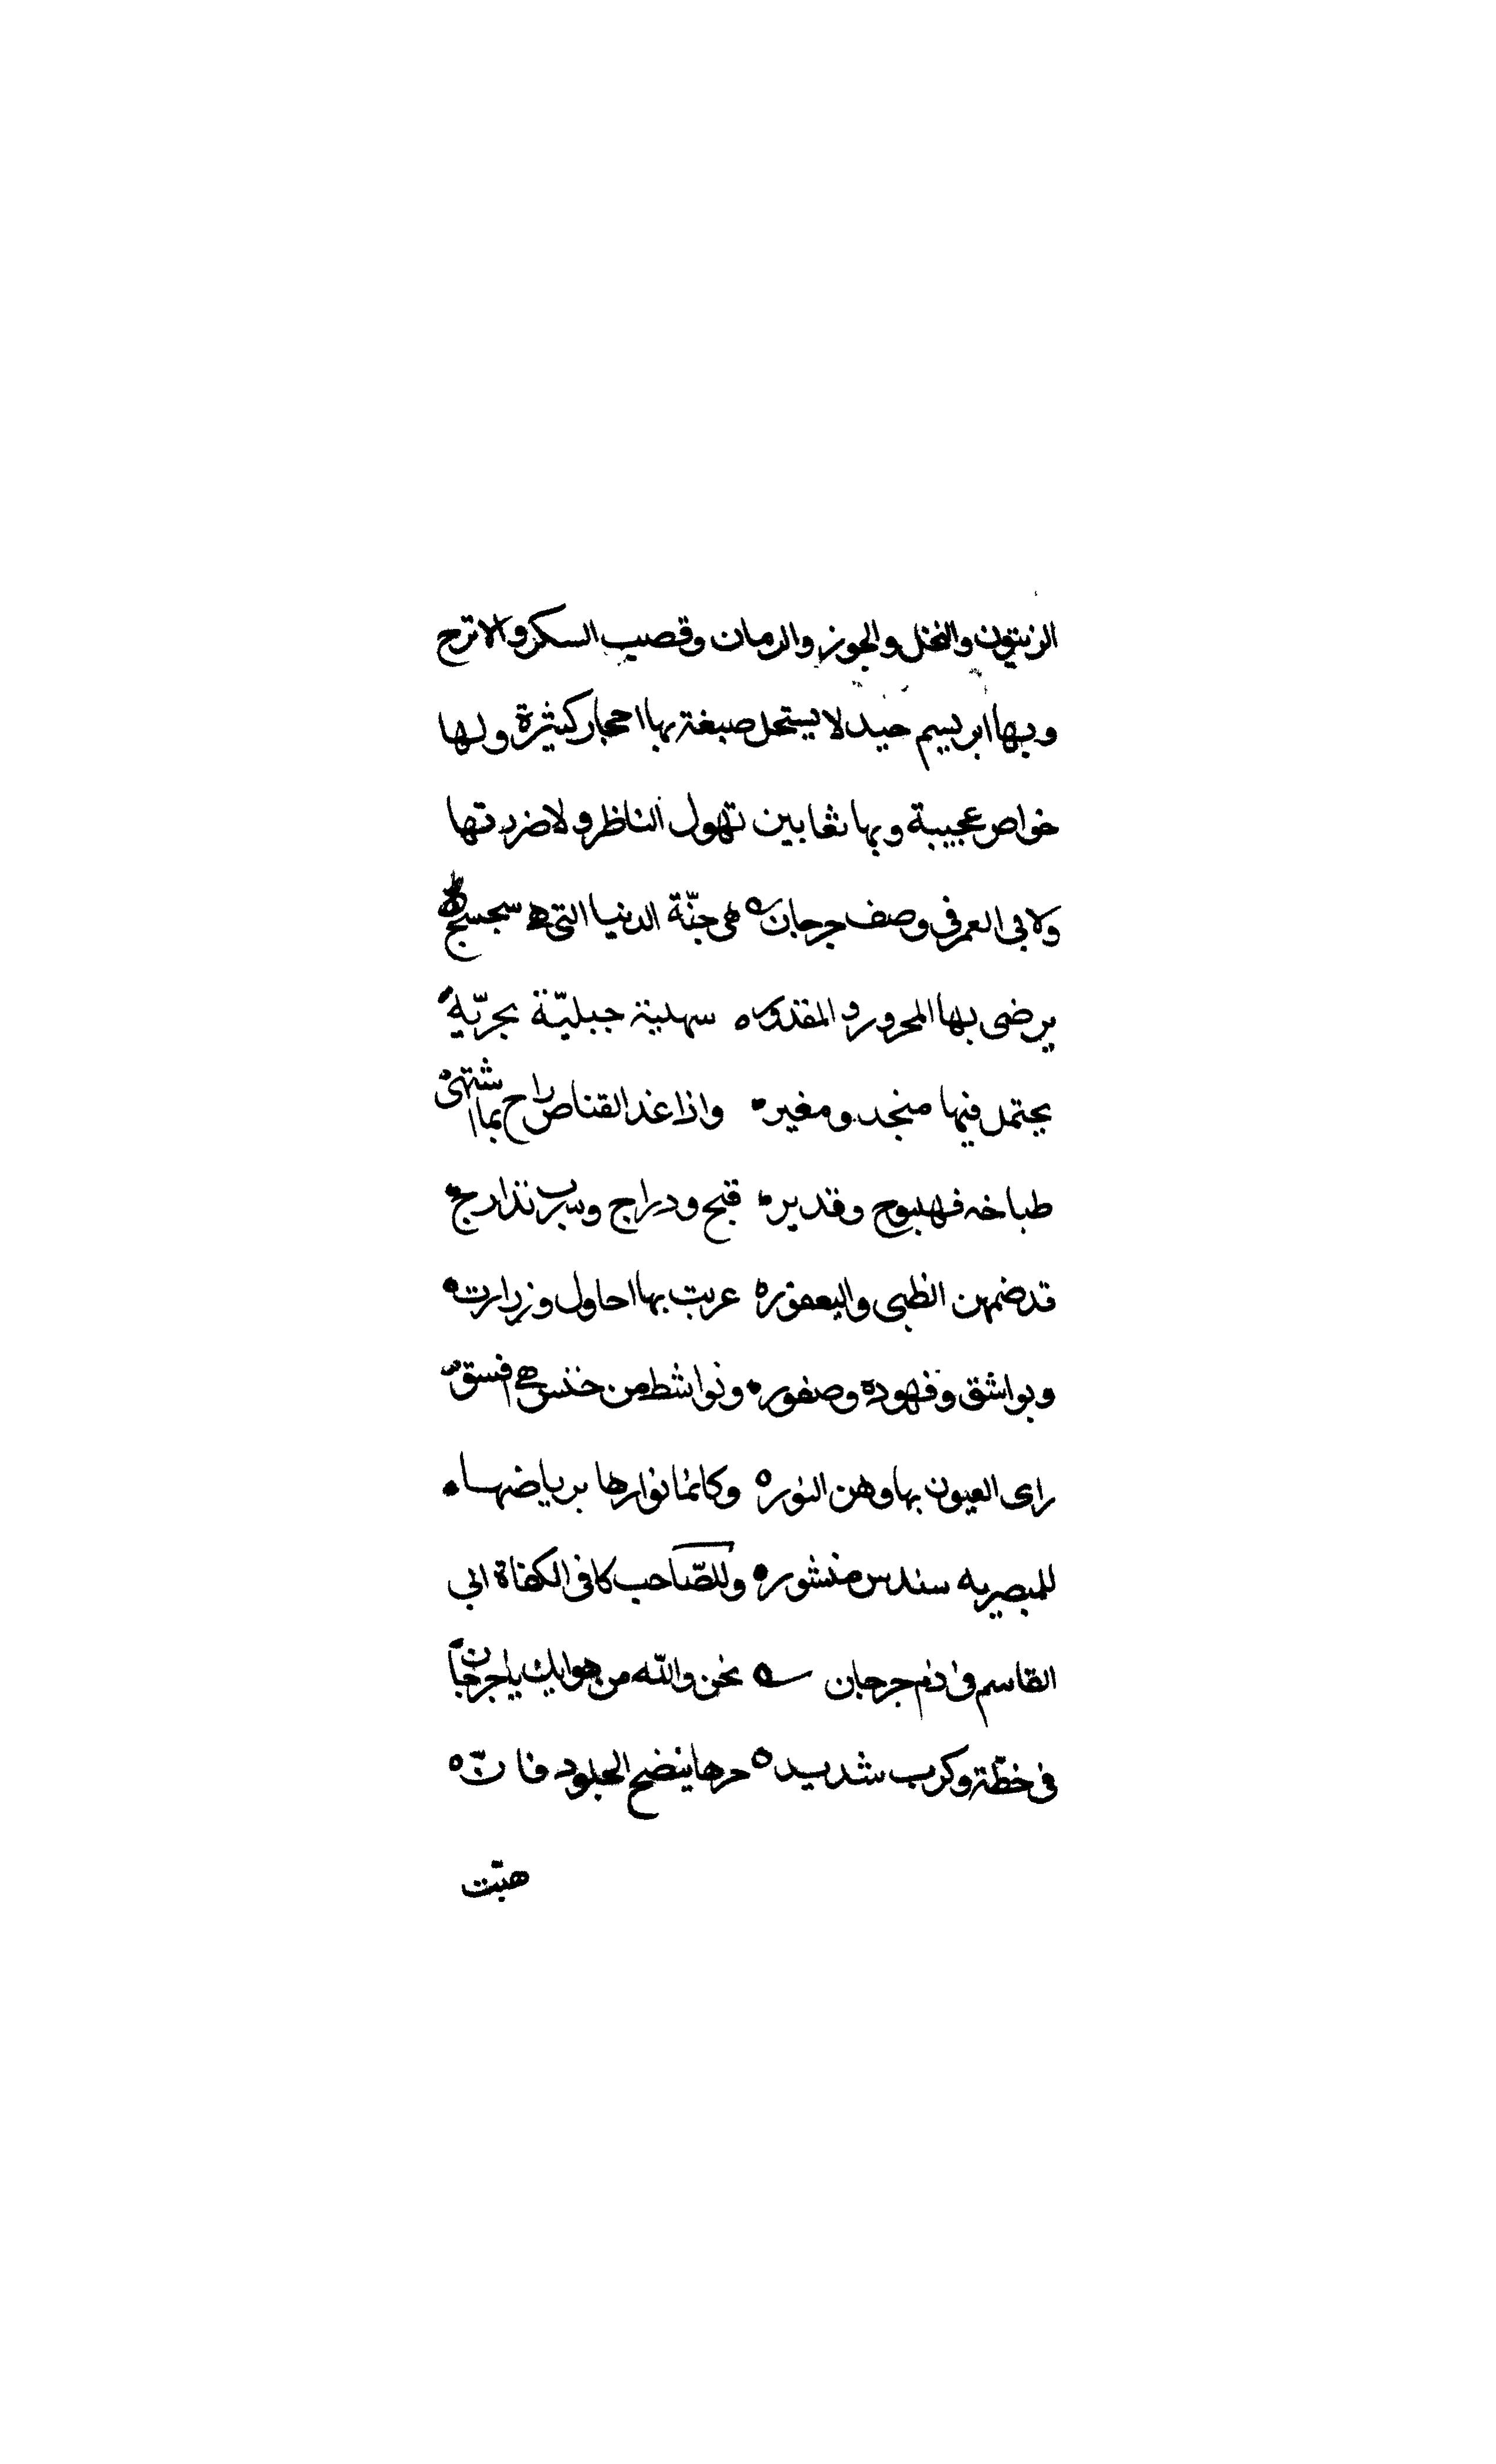 الزيتون والنخل والجوز والرمان وقصب السكر والاترج
وبها ابريسم جيد لا يستحل صبغة بها احجار كثيرة ولها
خواص عجيبة وبها ثعابين تهول الناظر ولا ضرر تها
ولابى العمر فى وصف جرجان ه هى جنّة الدنيا التى هى سجسج
يرضى بها المحرور و المقدور ه سهلية جبليّة بحريّة
يحتمل فيها منجد ومغير واذا غدا القناص راح بما اشتهى
طباخه فهبوج وقدير قبج ودراج وسرب تدارج
قد ضمهن الظبى واليعفور ه عربت بها احاول وزرارت
وبواشق وفهودة وصقور ونواشط من جنس هى افسق
راى العيون بها وهن النور ه وكانما نوارها برياضها
للمبصر به سندس منشور ه وللصّاحب كافى الكفاة ابى
القاسم فى ذم جرجان ه نحن والله من هوايك يا جرجان
فى خطّة وكرب شديد ه حرها ينضج الجلود فان
هبّت